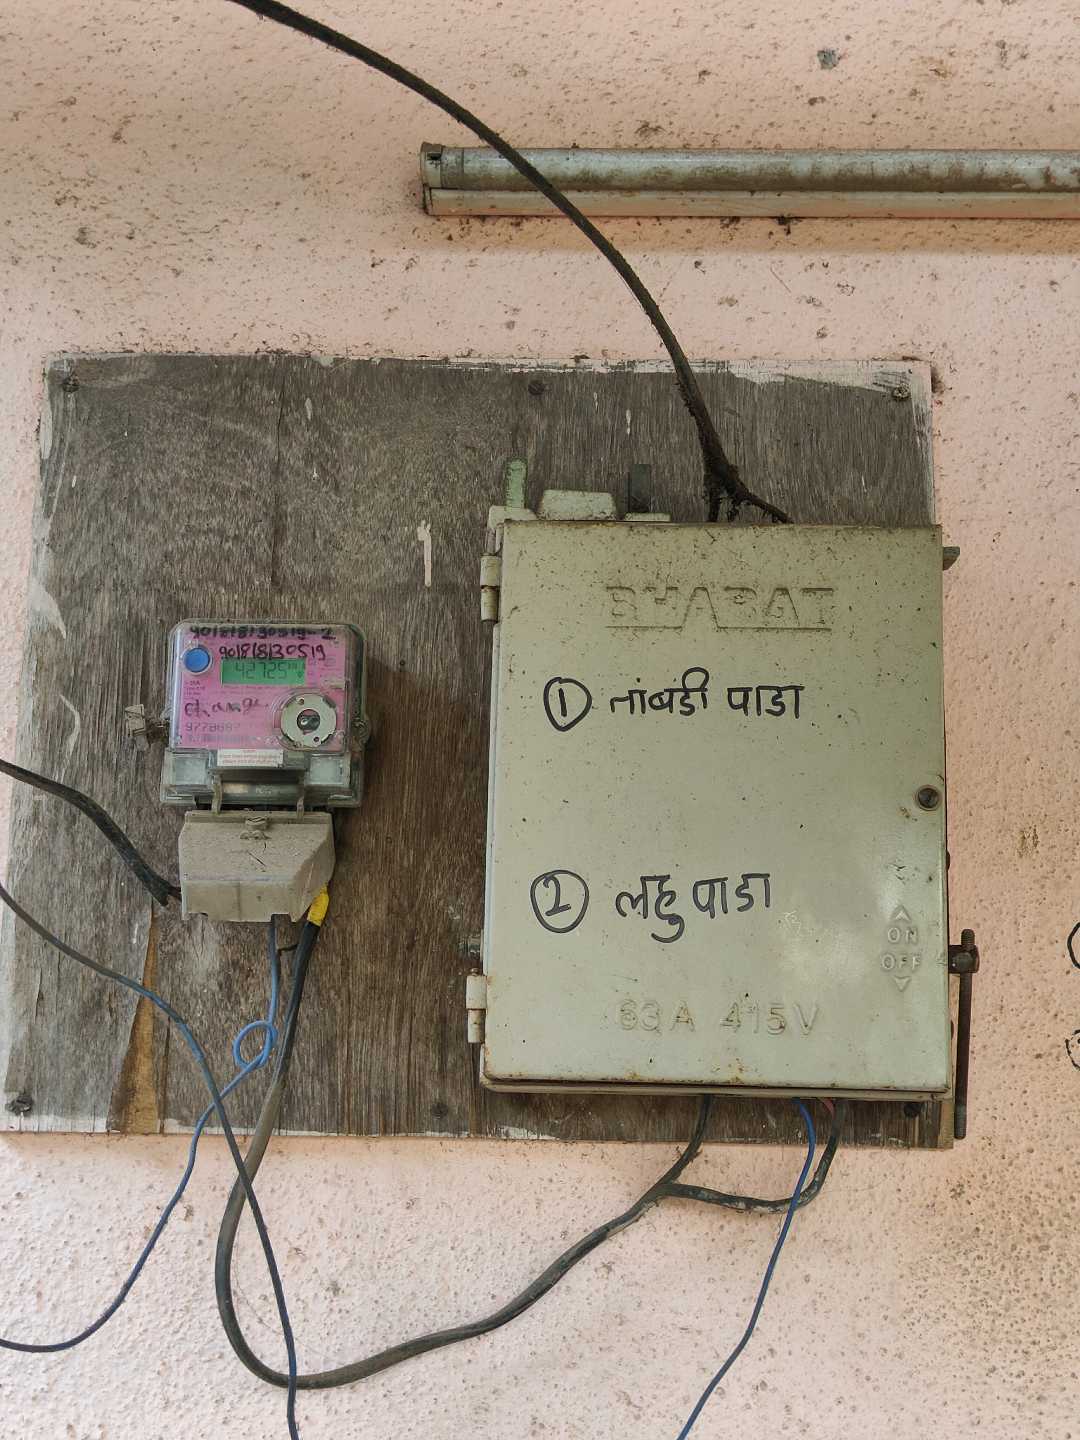 901818130519-2
901818130519
42725
change
BHARAT
① तांबडी पाडा
② लहु पाडा
ON
OFF
63A 415V